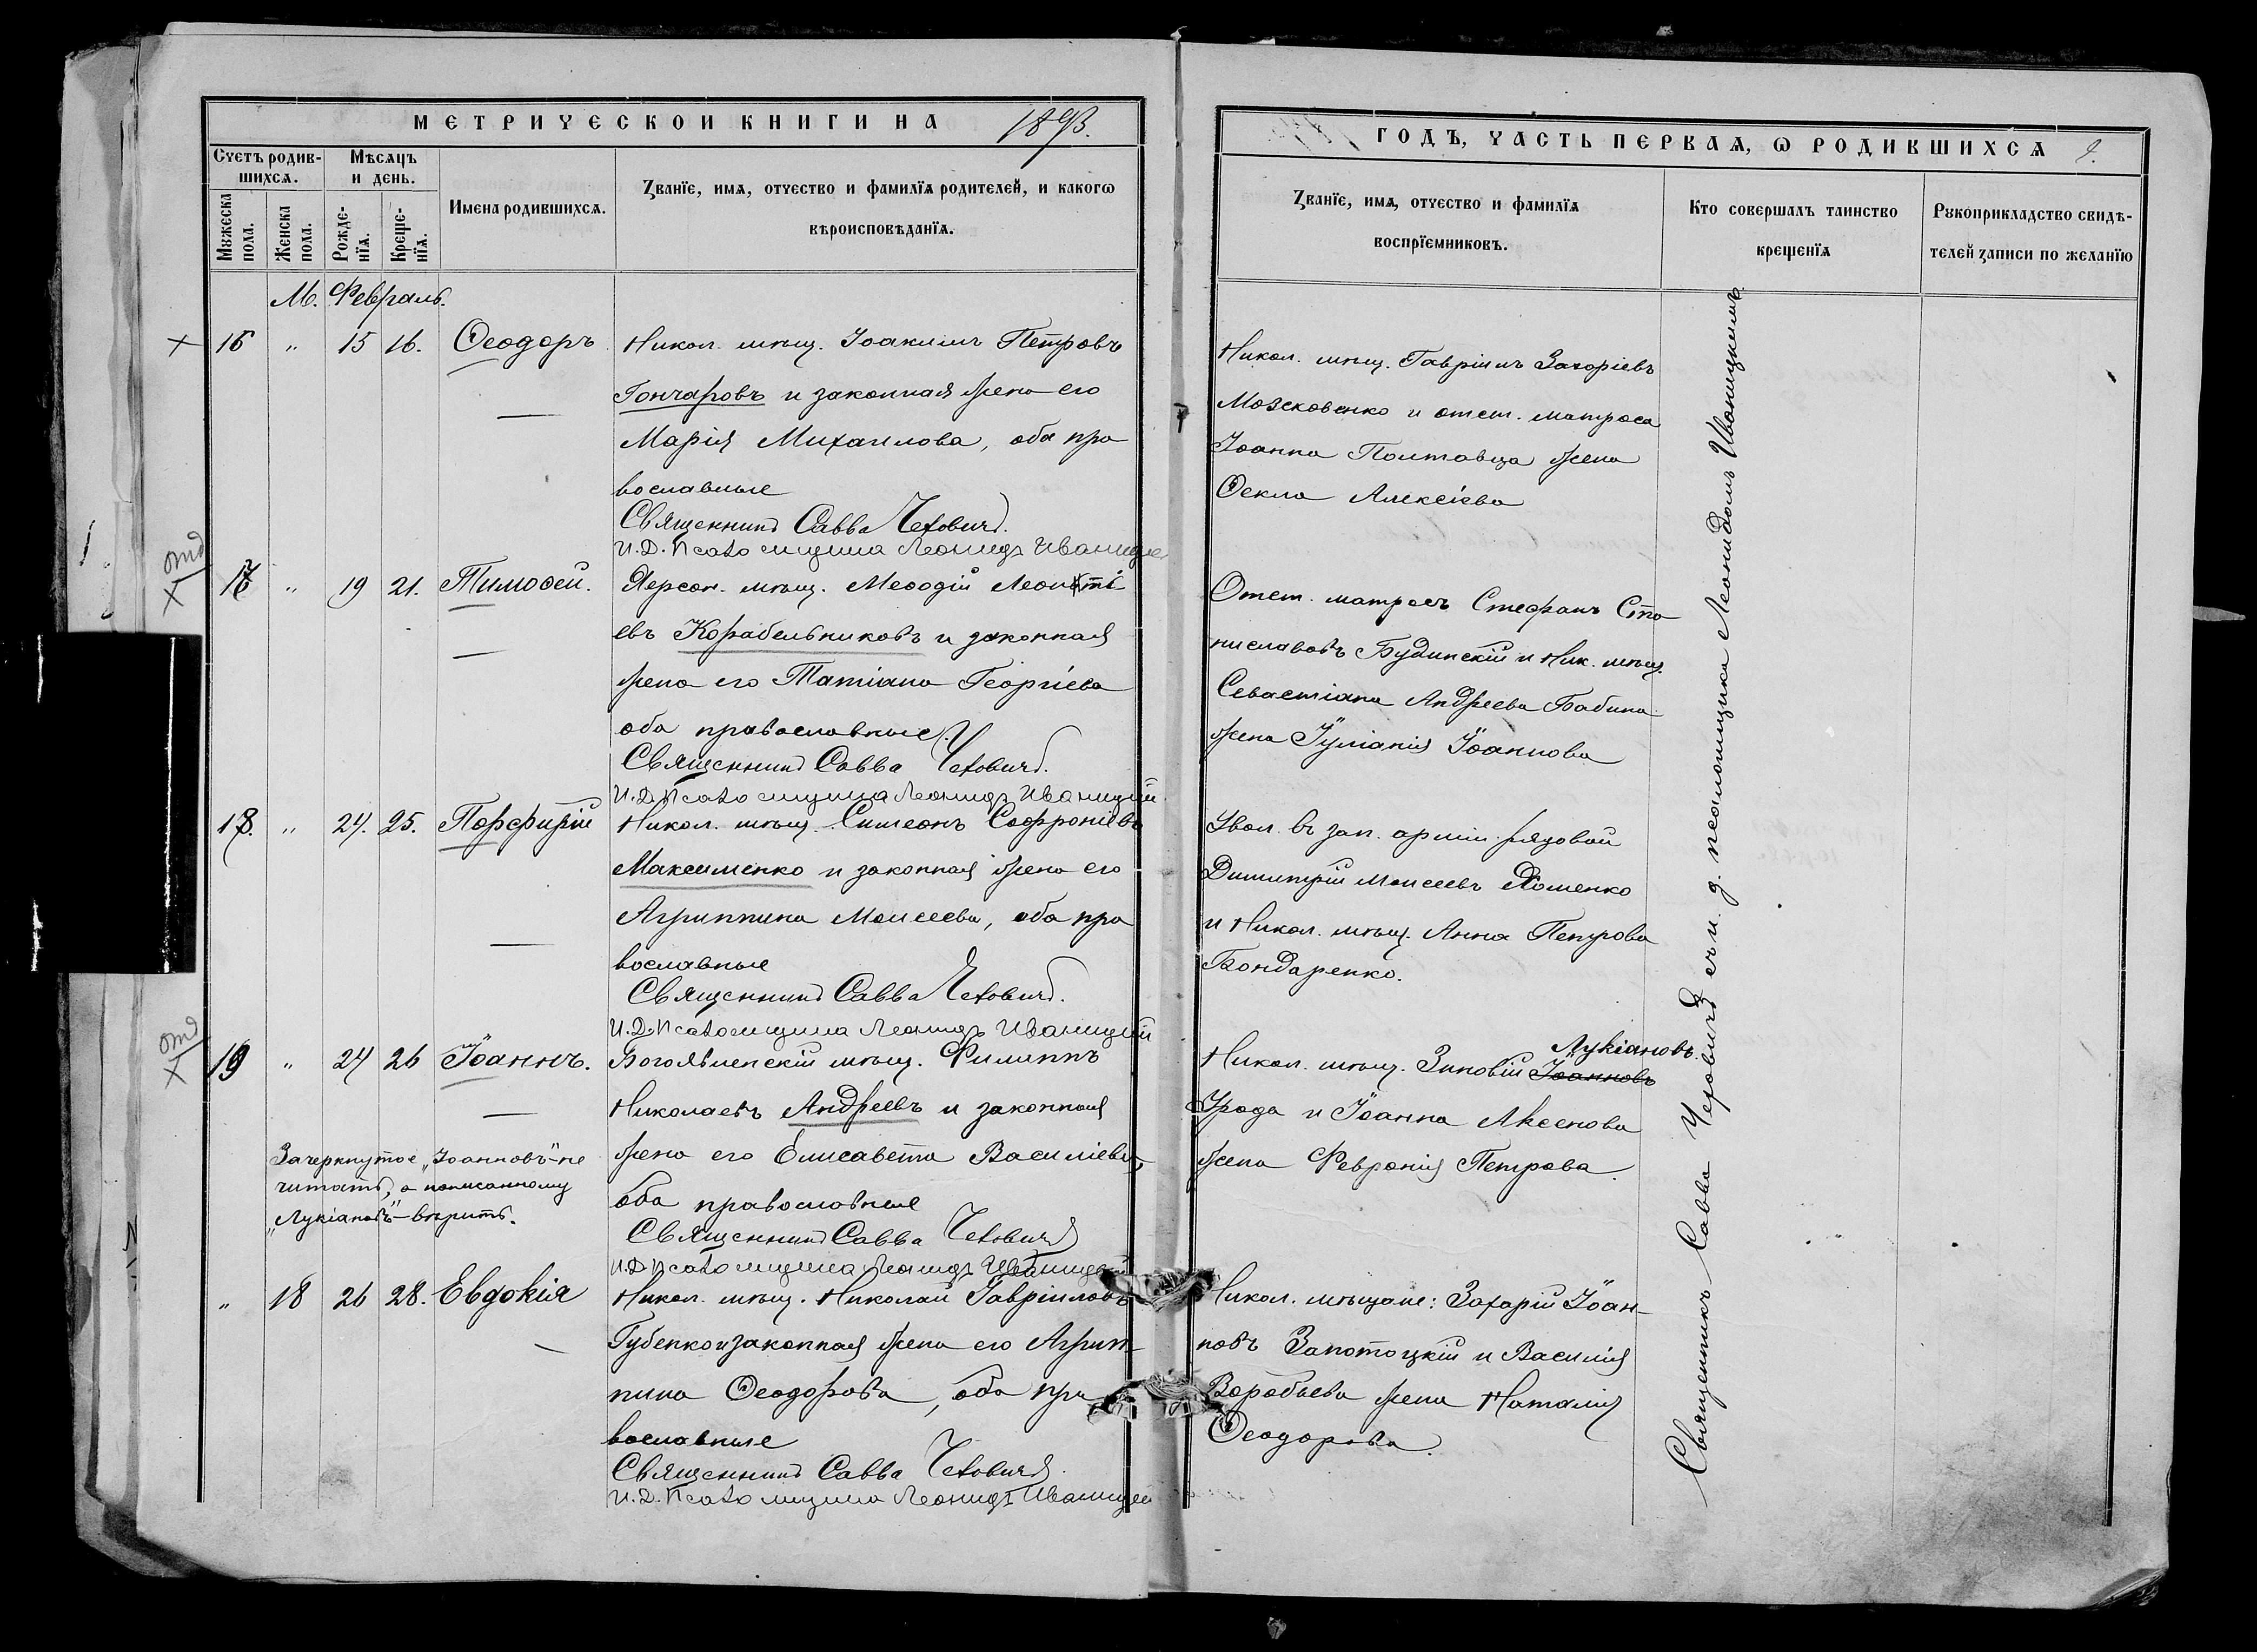 МЕТРИЧЕСКОЙ КНИГИ НА 1893.
Счетъ родив-
шихся.
Мѣсяцъ
и день.
Мужеска
пола.
Женска
пола.
Рожде-
нїя.
Креще-
нїя.
Имена родившихся.
Званїе, имя, отчество и фамилїя родителей, и какогѡ
вѣроисповѣданїя.
М. Февраль.
16 " 15 16. Ѳеодоръ
Никол. мѣщ. Іоакимъ Петровъ
Гончаровъ и законная жена его
Марія Михаилова, оба пра
вославные
Священникъ Савва
И.Д. Псаломщика Леонидъ Иваницкій
отд
17 " 19 21. Тимоѳей.
Херсон. мѣщ. Меѳодій Леонті
евъ Корабельниковъ и законная
жена его Татіана Георгіева
оба православные
Священникъ Савва
И.Д. Псаломщика Леонидъ Иваницкій
18. " 24. 25. Порфирій
Никол. мѣщ. Симеонъ Софроніевъ
Максименко и законная жена его
Агриппина Моисеева, оба пра
вославные
Священникъ Савва
И.Д. Псаломщика Леонидъ Иваницкій
отд
19 " 24 26 Іоаннъ.
Богоявленскій мѣщ. Филиппъ
Николаевъ Андреевъ и законная
жена его Елисавета Василіева,
оба православные
Священникъ Савва
И.Д. Псаломщика Леонидъ Иваницкій
Зачеркнутое „Іоанновъ"-не
читать, а написанному
„Лукіановъ"-вѣрить.
" 18 26 28. Евдокія
Никол. мѣщ. Николай Гавріиловъ
Губенко и законная жена его Агрип-
пина Ѳеодорова, оба пра
вославные
Священникъ Савва
И.Д. Псаломщика Леонидъ Иваницкій
ГОДЪ, ЧАСТЬ ПЕРВАЯ, Ѡ РОДИВШИХСЯ
Званїе, имя, отчество и фамилїя
воспрїемниковъ.
Кто совершалъ таинство
крещенїя
Рукоприкладство свидѣ-
телей записи по желанїю
Никол. мѣщ. Гавріилъ Захаріевъ
и отст. матроса
Іоанна Полтавца жена
Ѳекла Алексіева
Отст. матросъ Стефанъ Ста
ниславовъ Будинскій и Ник. мѣщ.
Севастіана Андреева Бабина
жена Іуліанія Іоаннова
Увол. въ зап. арміи рядовой
Димитрій Моисеевъ
и Никол. мѣщ. Анна Петрова
Бондаренко.
Лукіановъ.
Никол. мѣщ. Зиновій Іоанновъ
и Іоанна Аксенова
жена Февронія Петрова.
Никол. мѣщане: Захарій Іоан-
новъ Запотоцкій и Василія
Воробьева жена Наталія
Ѳеодорова.
Священникъ Савва съ и. д. псаломщика Леонидомъ Иваницкимъ